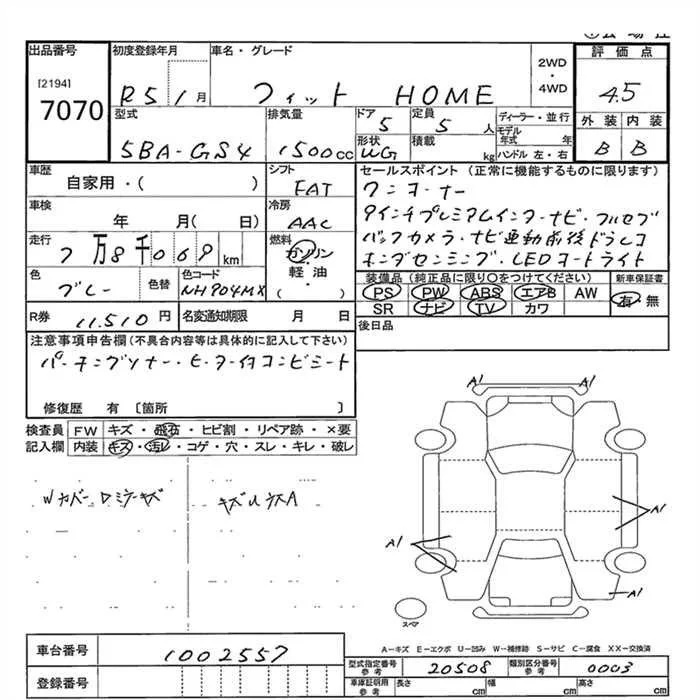 出品番号
[2194]
7070
初度登録年月
R5 / 1 月
車名・グレード
フィット HOME
2WD
・
4WD
評価点
4.5
外装 内装
B B
型式
5BA-GS4
排気量
1500cc
ドア
5
定員
5 人
形状
WG
積載
kg
ディーラー・並行
モデル年式 年
ハンドル 左・右
車歴
自家用・( )
シフト
FAT
セールスポイント (正常に機能するものに限ります)
ワンオーナー
9インチプレミアムインターナビ・フルセグ
バックカメラ・ナビ連動前後ドラレコ
ホンダセンシング・LEDヘッドライト
車検
年 月( 日)
冷房
AAC
走行
2万8千069km
燃料
ガソリン
軽油
( )
色
グレー
色替
色コード
NH904MX
装備品 (純正品に限り○をつけてください)
PS PW ABS エアB AW
SR ナビ TV カワ
新車保証書
有・無
R券 11,510 円
名変通知期限 月 日
後日品
注意事項申告欄(不具合内容等は具体的に記入して下さい)
パーキングソナー・ヒーター付コンビシート
修復歴 有 〔箇所 〕
検査員記入欄
FW キズ・飛石・ヒビ割・リペア跡・×要
内装 キズ・汚レ・コゲ・穴・スレ・キレ・破レ
Wカバー ロミラーキズ
A1 A1
A1
A1
A1
スペア
A-キズ E-エクボ U-凹み W-補修跡 S-サビ C-腐食 XX-交換済
車台番号
1002557
登録番号
型式指定番号
参考
20508
類別区分番号
参考
0003
車庫証明用
参考
長さ cm 幅 cm 高さ cm